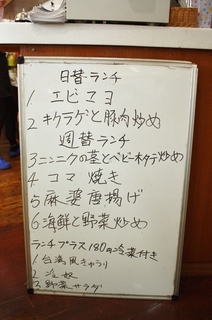 日替ランチ
1 エビマヨ
2 キクラゲと豚肉炒め
週替ランチ
3 ニンニクの茎とベビーホタテ炒め
4 コマ焼き
5 麻婆唐揚げ
6 海鮮と野菜炒め
ランチプラス180円冷菜付き
1 台湾風きゅうり
2 冷奴
3 野菜サラダ